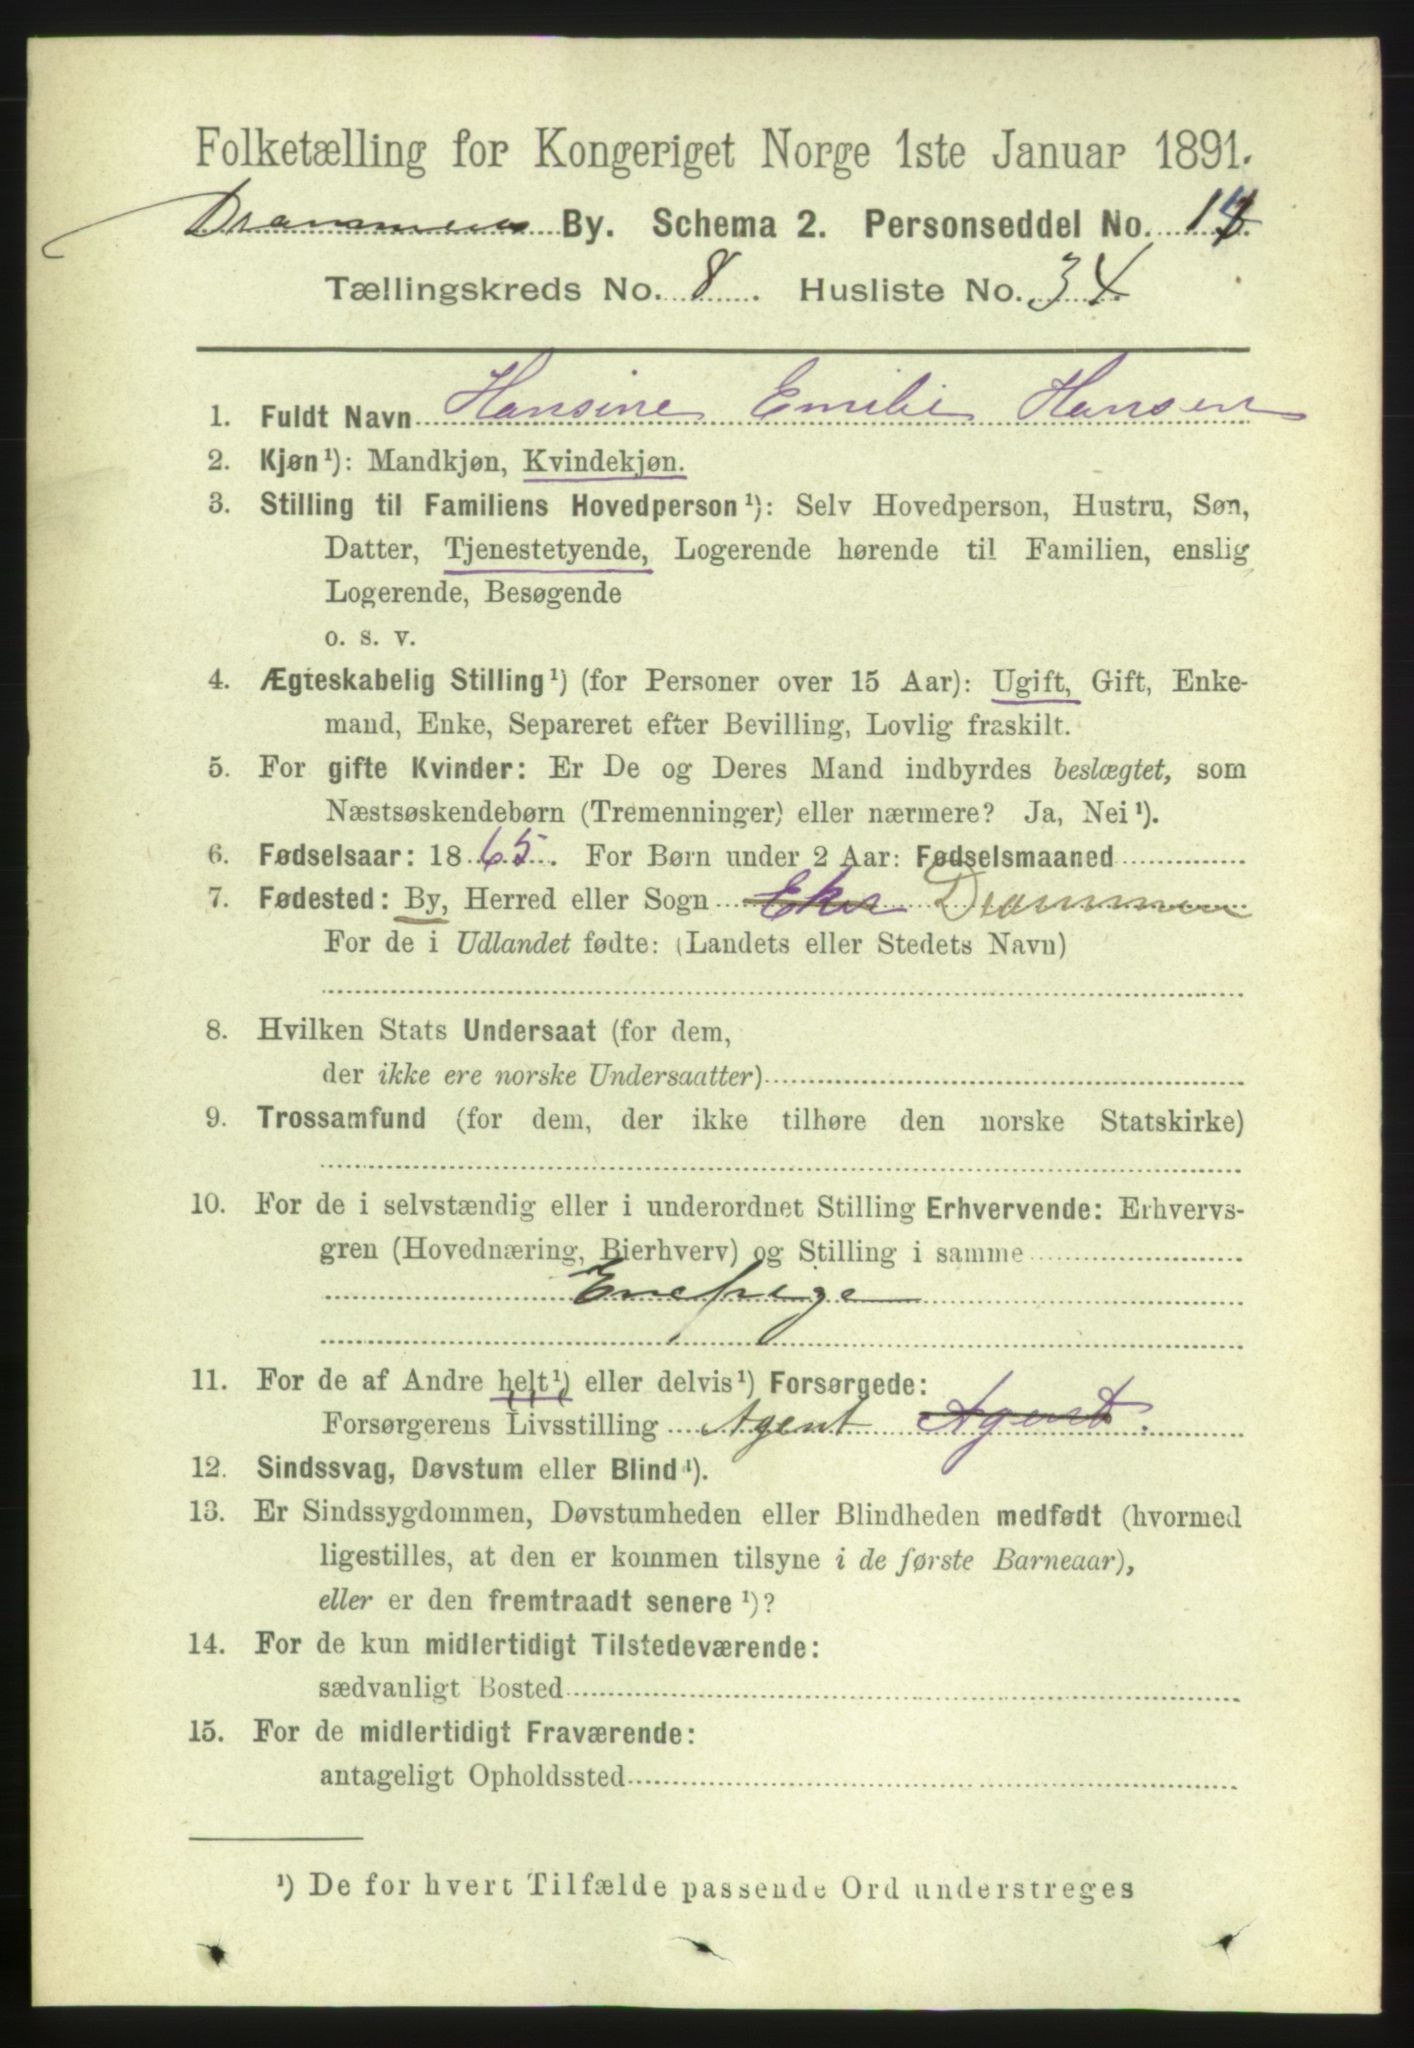 Folketælling for Kongeriget Norge 1ste Januar 1891.
Drammens By. Schema 2. Personseddel No.
Tællingskreds No. 8. Husliste No. 34
1. Fuldt Navn Hansine Emilie Hansen
2. Kjøn¹): Mandkjøn, Kvindekjøn.
3. Stilling til Familiens Hovedperson¹): Selv Hovedperson, Hustru, Søn,
Datter, Tjenestetyende, Logerende hørende til Familien, enslig
Logerende, Besøgende
o. s. v.
4. Ægteskabelig Stilling¹) (for Personer over 15 Aar): Ugift, Gift, Enke-
mand, Enke, Separeret efter Bevilling, Lovlig fraskilt.
5. For gifte Kvinder: Er De og Deres Mand indbyrdes beslægtet, som
Næstsøskendebørn (Tremenninger) eller nærmere? Ja, Nei¹).
6. Fødselsaar: 1865. For Børn under 2 Aar: Fødselsmaaned
7. Fødested: By, Herred eller Sogn Eker Drammen
For de i Udlandet fødte: (Landets eller Stedets Navn)
8. Hvilken Stats Undersaat (for dem,
der ikke ere norske Undersaatter)
9. Trossamfund (for dem, der ikke tilhøre den norske Statskirke)
10. For de i selvstændig eller i underordnet Stilling Erhvervende: Erhvervs-
gren (Hovednæring, Bierhverv) og Stilling i samme
Enepige
11. For de af Andre helt¹) eller delvis¹) Forsørgede:
Forsørgerens Livsstilling Agent Agent.
12. Sindssvag, Døvstum eller Blind¹).
13. Er Sindssygdommen, Døvstumheden eller Blindheden medfødt (hvormed
ligestilles, at den er kommen tilsyne i de første Barneaar),
eller er den fremtraadt senere¹)?
14. For de kun midlertidigt Tilstedeværende:
sædvanligt Bosted
15. For de midlertidigt Fraværende:
antageligt Opholdssted
¹) De for hvert Tilfælde passende Ord understreges